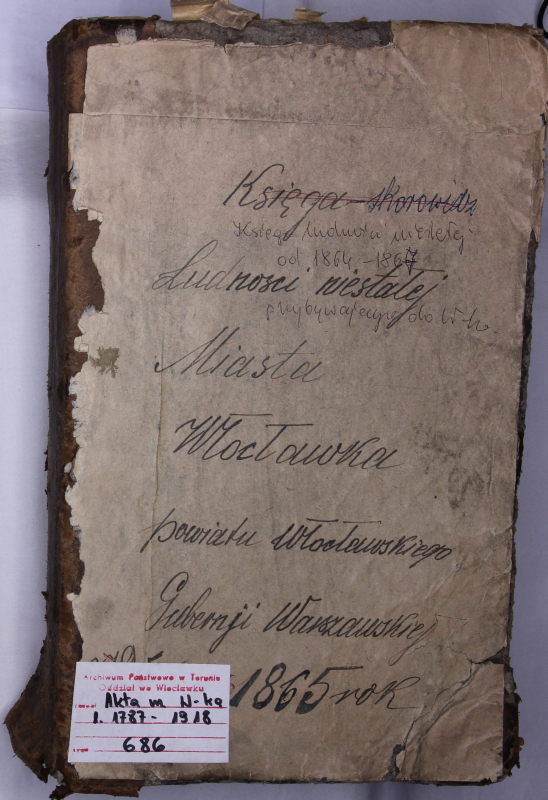 Księga - skorowidz
Księga ludności niestałej
od 1864 - 1867
Ludności niestałej
przybywającej do W-ka.
Miasta
Włocławka
powiatu Włocławskiego
Gubernji Warszawskiej
1865 rok
Archiwum Państwowe w Toruniu
Oddział we Włocławku
Akta m. W-ka
1. 1787 - 1918
686